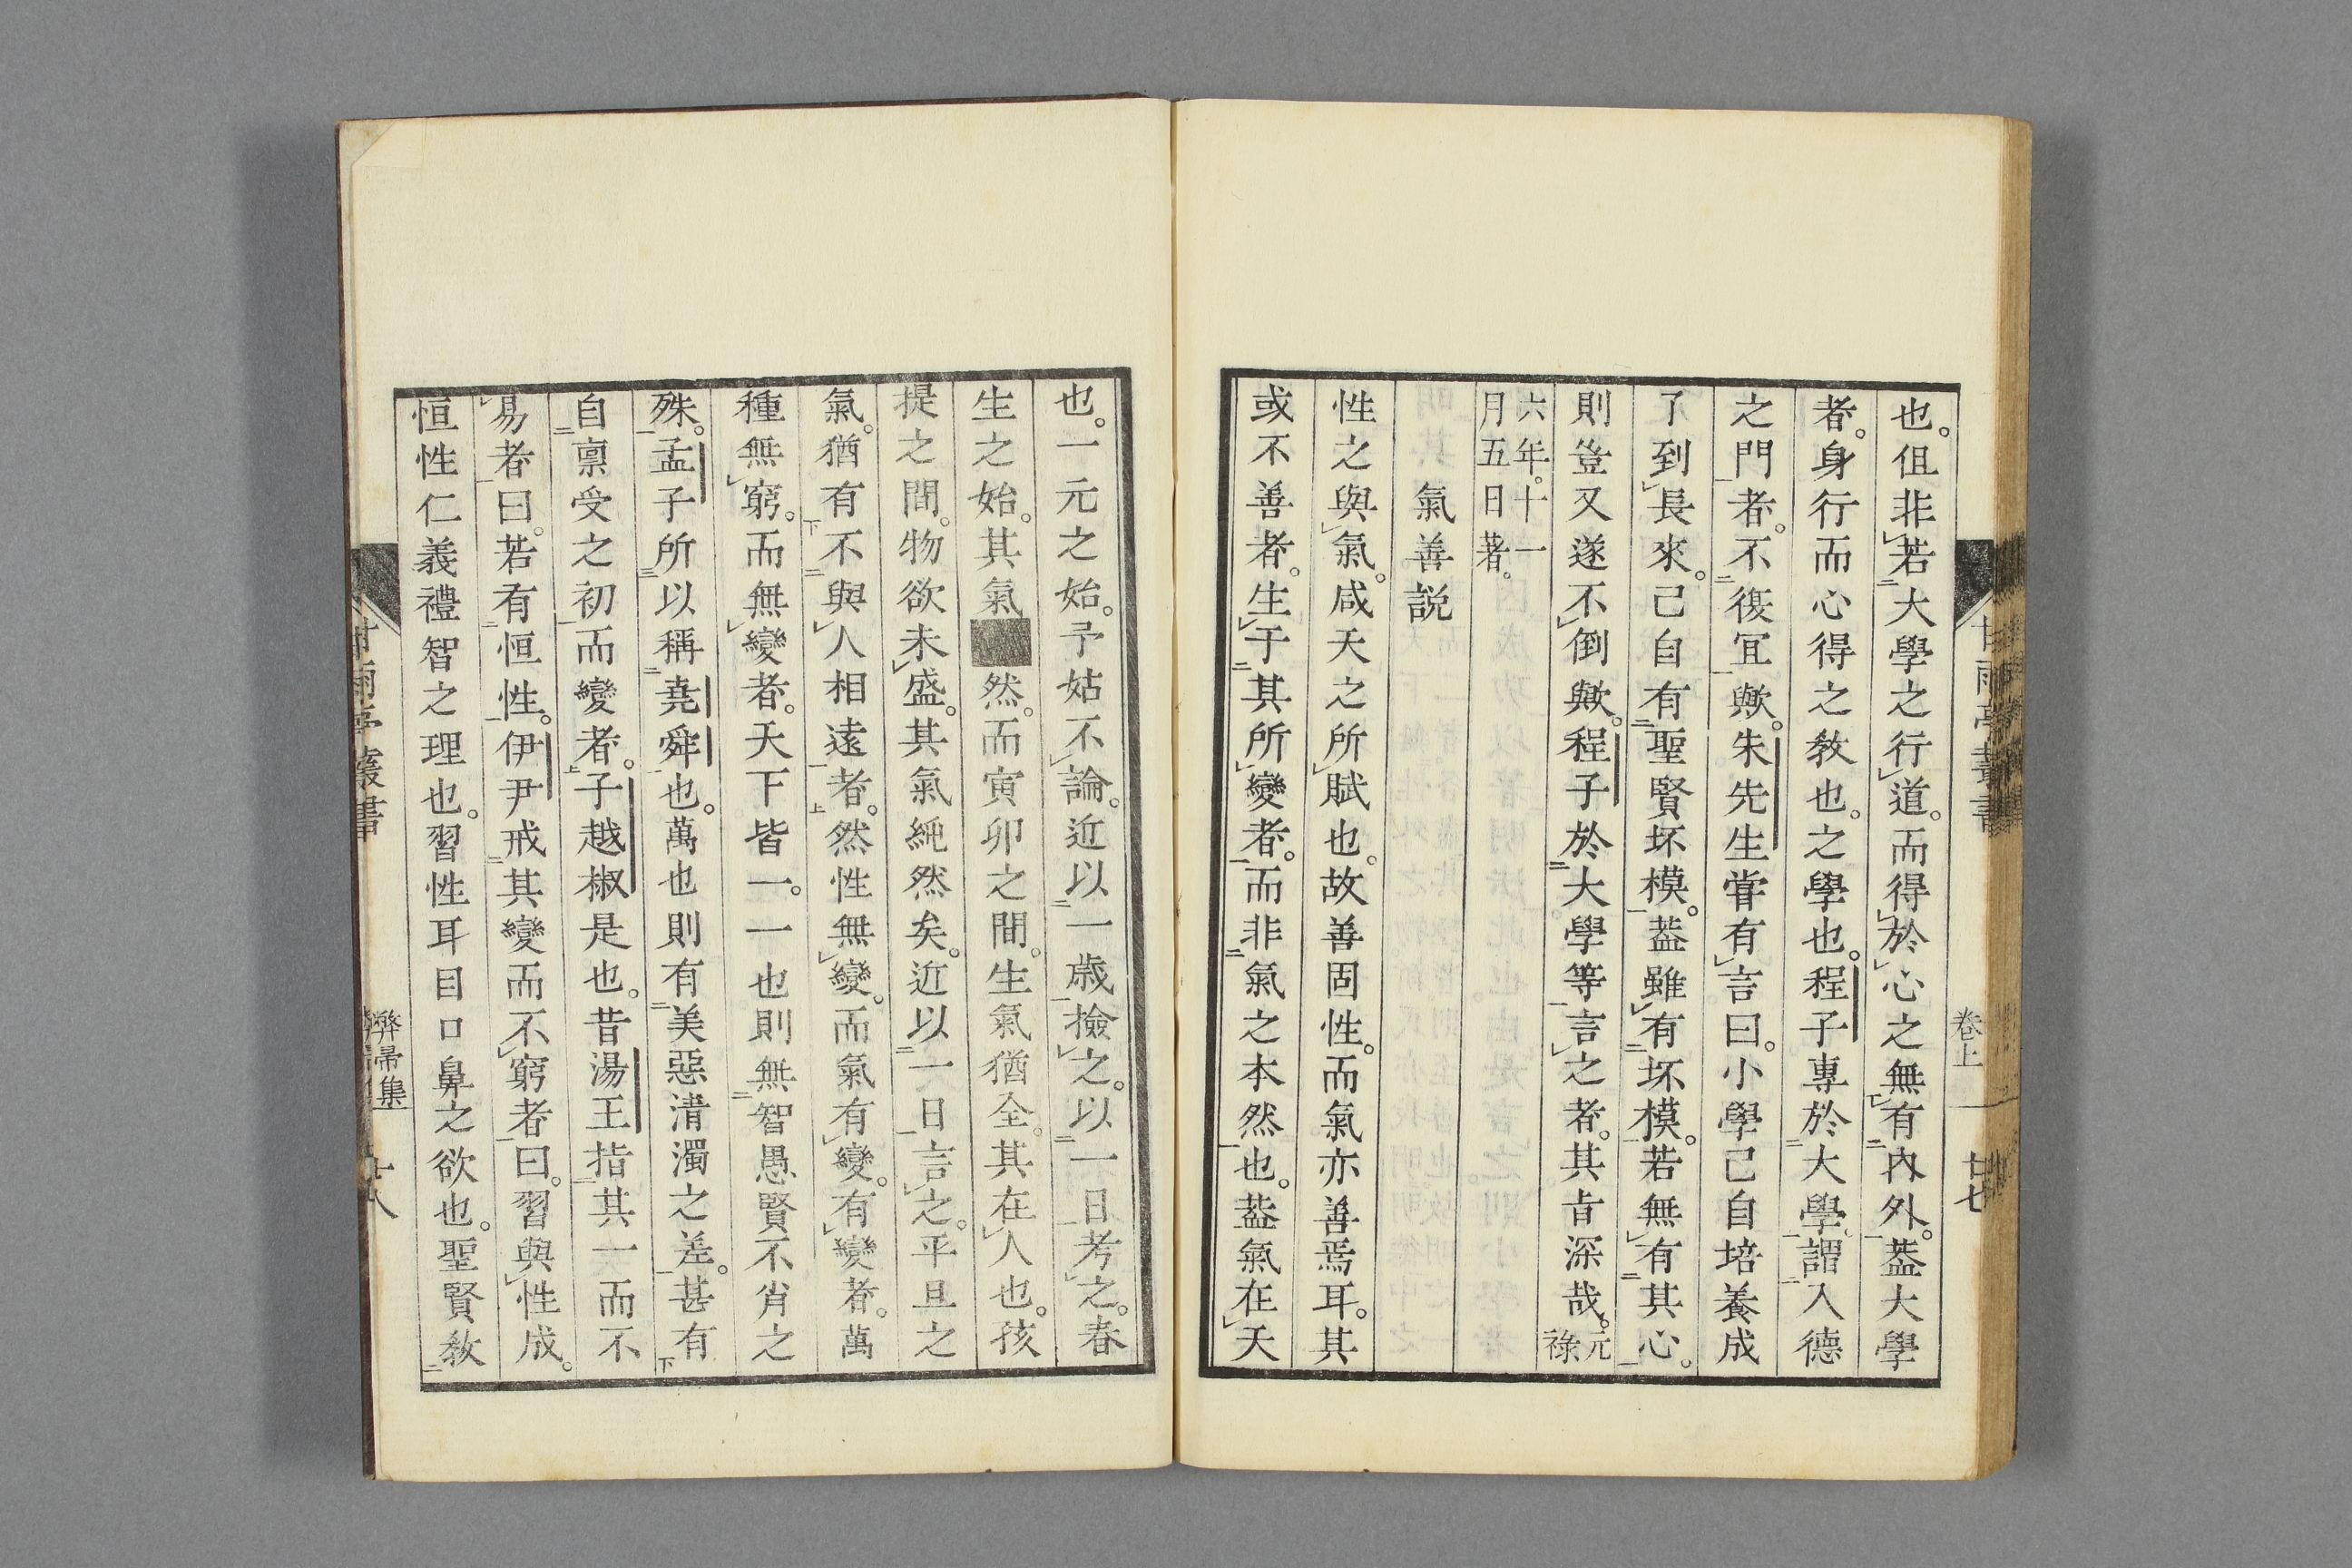 也。伹非若大學之行道。而得於心之無有內外。葢大學
者。身行而心得之敎也。之學也。程子專於大學。謂入德
之門者。不復冝歟。朱先生甞有言曰。小學已自培養成
了到長來。已自有聖賢坏模。葢雖有坏模。若無有其心。
則豈又遂不倒歟。程子於大學等言之者。其旨深哉。元祿
六年。十一
月五日著。
氣善説
性之與氣。咸天之所賦也。故善固性。而氣亦善焉耳。其
或不善者。生于其所變者。而非氣之本然也。葢氣在天
卷上
廿七
也。一元之始。予姑不論。近以一歳撿之。以一日考之。春
生之始。其氣■然。而寅卯之間。生氣猶全。其在人也。孩
提之間。物欲未盛。其氣純然矣。近以一日言之。平旦之
氣。猶有不與人相遠者。然性無變。而氣有變。有變者。萬
種無窮。而無變者。天下皆一。一也則無智愚賢不肖之
殊。孟子所以稱堯舜也。萬也則有美惡清濁之差。甚有
自禀受之初而變者。子越椒是也。昔湯王指其一而不
易者曰。若有恒性。伊尹戒其變而不窮者曰。習與性成。
恒性仁義禮智之理也。習性耳目口鼻之欲也。聖賢敎
甘雨亭叢書
弊帚集
廿八